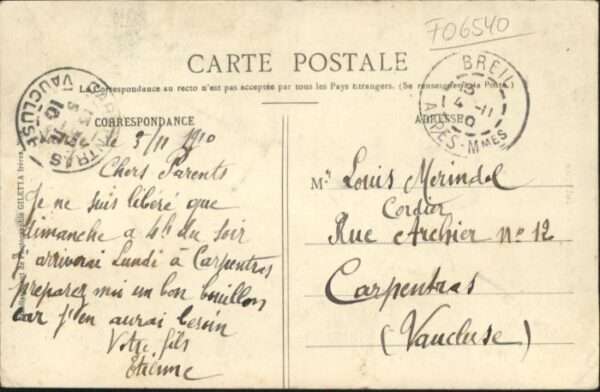 F06540
CARTE POSTALE
La Correspondance au recto n'est pas acceptée par tous les Pays étrangers. (Se renseigner à la Poste.)
CORRESPONDANCE
le 3/11 1910
Chers Parents
Je ne suis libéré que
dimanche a 4h du soir
j'arriverai Lundi à Carpentras
preparez moi un bon bouillon
car j'en aurai besoin
Votre fils
Etienne
ADRESSE
Mr Louis Merindol
Cordier
Rue Archier no 12
Carpentras
(Vaucluse)
BREIL
4 -11
10
ALPES-Mmes
CARPENTRAS
VAUCLUSE
GILETTA frères